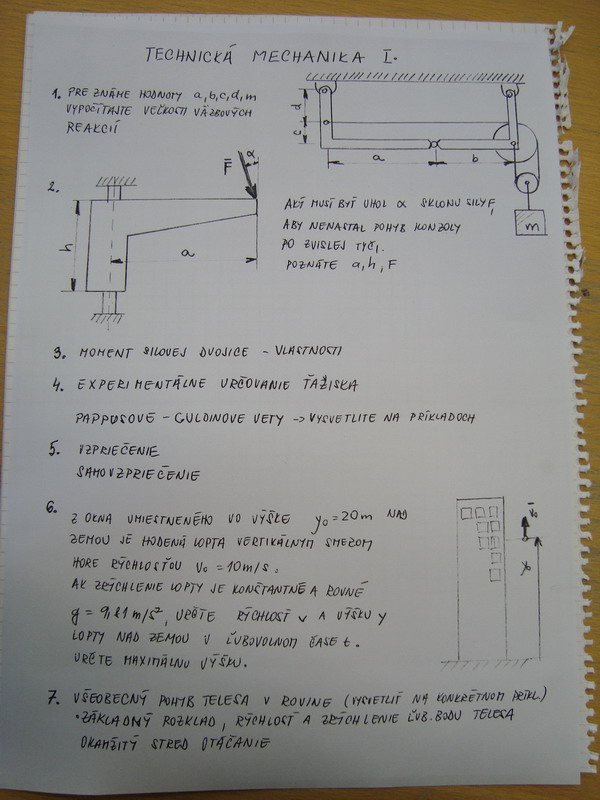 TECHNICKÁ MECHANIKA I.
1. PRE ZNÁME HODNOTY a,b,c,d,m
VYPOČÍTAJTE VEĽKOSTI VÄZBOVÝCH
REAKCIÍ
d
c
a
b
m
2.
F
α
h
a
AKÝ MUSÍ BYŤ UHOL α SKLONU SILY F,
ABY NENASTAL POHYB KONZOLY
PO ZVISLEJ TYČI.
POZNÁTE a,h,F
3. MOMENT SILOVEJ DVOJICE - VLASTNOSTI
4. EXPERIMENTÁLNE URČOVANIE ŤAŽISKA
PAPPUSOVÉ - GULDINOVE VETY -> VYSVETLITE NA PRÍKLADOCH
5. VZPRIEČENIE
SAMOVZPRIEČENIE
6. Z OKNA UMIESTNENÉHO VO VÝŠKE y₀ = 20m NAD
ZEMOU JE HODENÁ LOPTA VERTIKÁLNYM SMEROM
HORE RÝCHLOSŤOU V₀ = 10m/s.
AK ZRÝCHLENIE LOPTY JE KONŠTANTNÉ A ROVNÉ
g = 9,81 m/s², URČTE RÝCHLOSŤ v A VÝŠKU y
LOPTY NAD ZEMOU V ĽUBOVOLNOM ČASE t.
URČTE MAXIMÁLNU VÝŠKU.
v₀
y₀
7. VŠEOBECNÝ POHYB TELESA V ROVINE (VYSVETLIŤ NA KONKRÉTNOM PRÍKL.)
• ZÁKLADNÝ ROZKLAD, RÝCHLOSŤ A ZRÝCHLENIE ĽUB. BODU TELESA
OKAMŽITÝ STRED OTÁČANIE